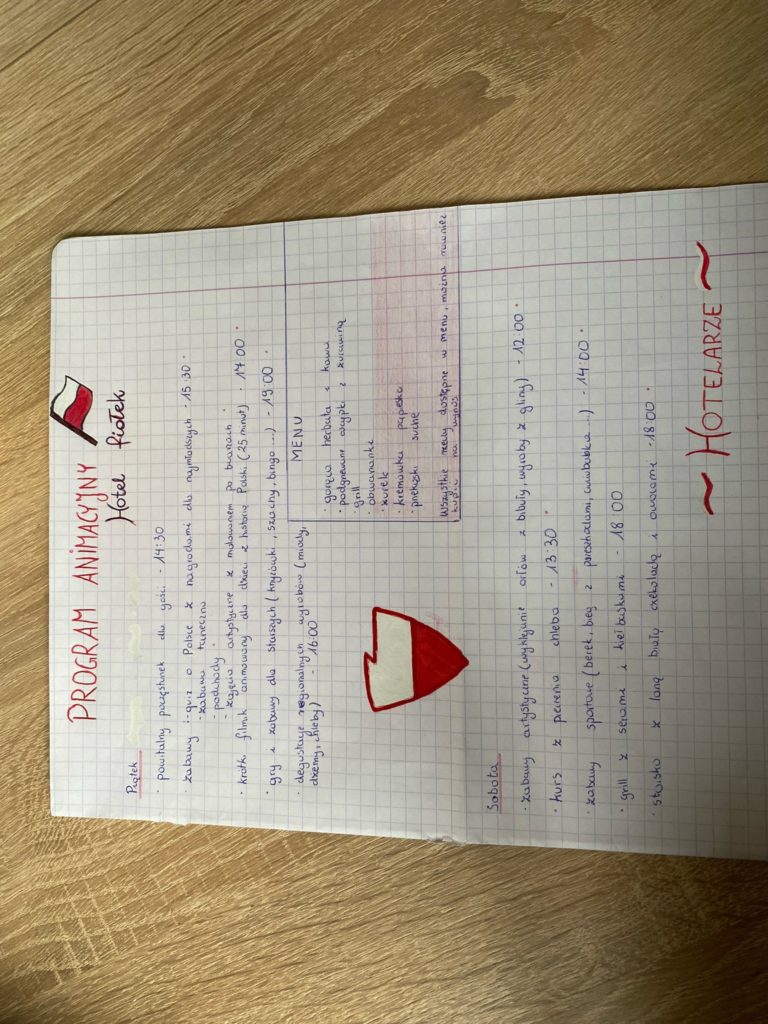 PROGRAM ANIMACYJNY
Hotel piątek
Piątek
· powitalny poczęstunek dla gości - 14:30
· zabawy :- quiz o Polsce z nagrodami dla najmłodszych - 15:30
- zabawa taneczna
- podchody
- zajęcia artystyczne z malowaniem po buziach
· krótki filmik animowany dla dzieci z historią Polski (25 minut) - 17:00
· gry i zabawy dla starszych (krzyżówki, szachy, bingo ...) - 19:00
· degustacje regionalnych wyrobów (miody,
dżemy, chleby) - 16:00
MENU
· gorąca herbata i kawa
· podgrzewane oscypki z żurawiną
· grill
· obwarzanki
· żurek
· kremówka papieska
· pierożki suche
Wszystkie rzeczy dostępne w menu, można również
kupić na wynos
Sobota
· zabawy artystyczne (wyklejanie orłów z bibuły, wyroby z gliny) - 12:00
· kurs z pieczenia chleba - 13:30
· zabawy sportowe (berek, bieg z przeszkodami, ciuciubabka ...) - 14:00
· grill z serami i kiełbaskami - 18:00
· stoisko z laną białą czekoladą i owocami - 18:00
~ HOTELARZE ~